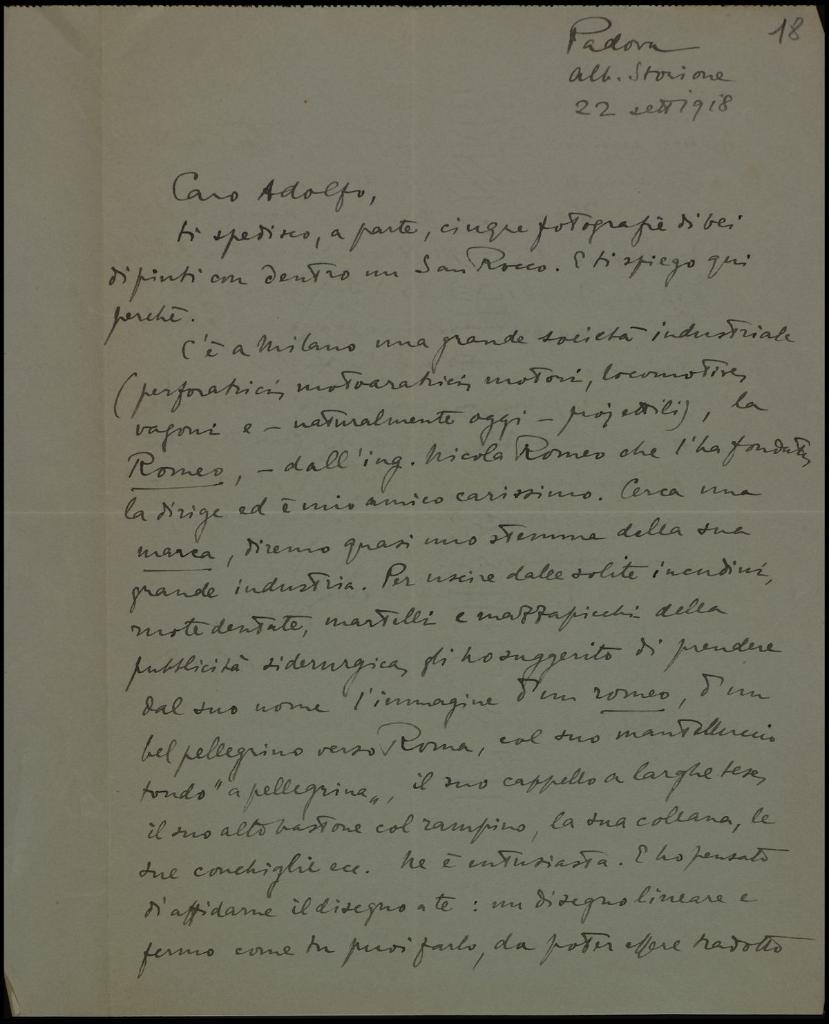 18
Padova
Alb. Storione
22 sett 1918
Caro Adolfo,
ti spedisco, a parte, cinque fotografie di bei
dipinti con dentro un San Rocco. E ti spiego qui
perchè.
C'è a Milano una grande società industriale
(perforatrici, motoaratrici, motori, locomotive,
vagoni e - naturalmente oggi - projettili), la
Romeo, - dall'ing. Nicola Romeo che l'ha fondata,
la dirige ed è mio amico carissimo. Cerca una
marca, diremo quasi uno stemma della sua
grande industria. Per uscire dalle solite incudini,
ruote dentate, martelli e mazzapicchi della
pubblicità siderurgica, gli ho suggerito di prendere
dal suo nome l'immagine d'un romeo, d'un
bel pellegrino verso Roma, col suo mantelluccio
tondo "a pellegrina„, il suo cappello a larghe tese,
il suo alto bastone col rampino, la sua collana, le
sue conchiglie ecc. Ne è entusiasta. E ho pensato
di affidarne il disegno a te: un disegno lineare e
fermo come tu puoi farlo, da poter essere tradotto